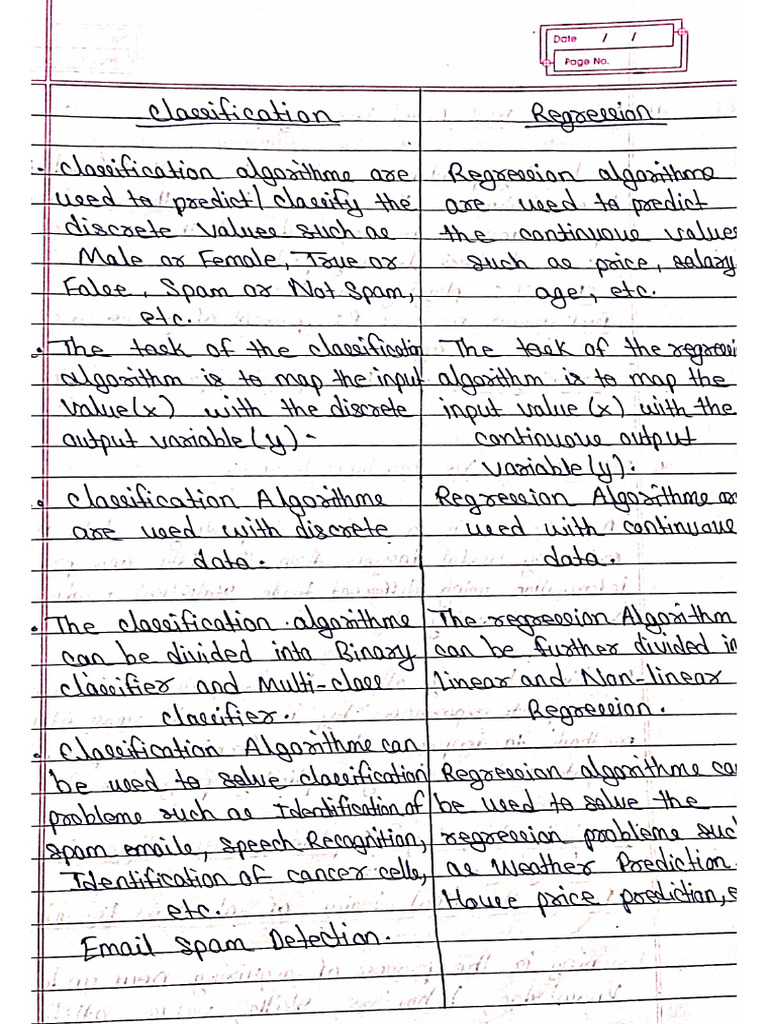 Date / /
Page No.
Classification
Regression
Classification algorithms are
used to predict/classify the
discrete values such as
Male or Female, True or
False, Spam or Not Spam,
etc.
Regression algorithms
are used to predict
the continuous values
such as price, salary,
age, etc.
The task of the classification
algorithm is to map the input
value(x) with the discrete
output variable(y).
The task of the regressi
algorithm is to map the
input value (x) with the
continuous output
variable(y).
Classification Algorithms
are used with discrete
data.
Regression Algorithms ar
used with continuous
data.
The classification algorithms
can be divided into Binary
classifier and Multi-class
classifier.
The regression Algorithm
can be further divided in
linear and Non-linear
Regression.
Classification Algorithms can
be used to solve classification
problems such as Identification of
spam emails, Speech Recognition,
Identification of cancer cells,
etc.
Email Spam Detection.
Regression algorithms ca
be used to solve the
regression problems suc
as Weather Prediction
House price prediction, e